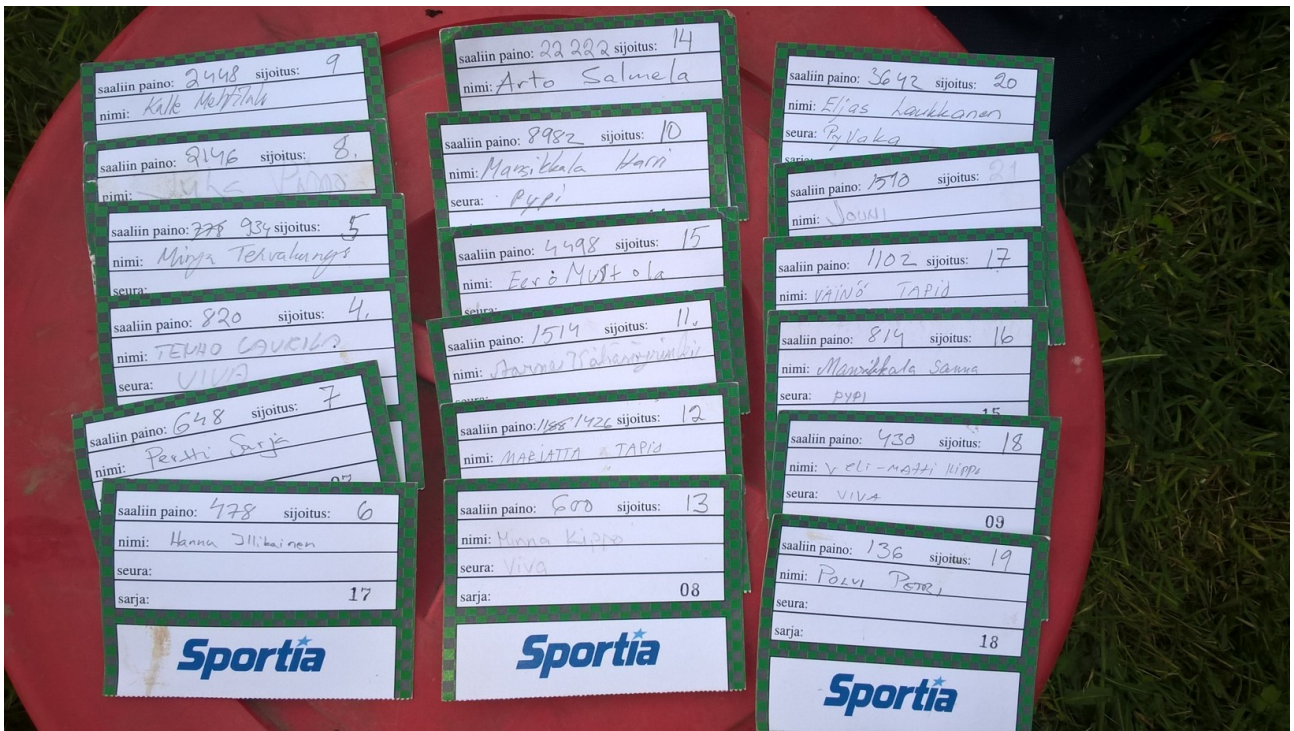 saaliin paino: 2448 sijoitus: 9
nimi: Kalle
saaliin paino: 2146 sijoitus: 8.
nimi: Juha
saaliin paino: 778 934 sijoitus: 5
nimi: Minja
seura:
saaliin paino: 820 sijoitus: 4.
nimi: TENHO LAURILA
seura: VIVA
saaliin paino: 648 sijoitus: 7
nimi: Pertti Sarja
07
saaliin paino: 478 sijoitus: 6
nimi: Hannu Illikainen
seura:
sarja: 17
Sportia
saaliin paino: 22 222 sijoitus: 14
nimi: Arto Salmela
saaliin paino: 8982 sijoitus: 10
nimi: Mansikkala Harri
seura: Pypi
saaliin paino: 4498 sijoitus: 15
nimi: Eero Mustola
seura:
saaliin paino: 1514 sijoitus: 11.
nimi: Aarne
seura:
saaliin paino: 1188 1426 sijoitus: 12
nimi: MARIATTA TAPIO
saaliin paino: 600 sijoitus: 13
nimi: Minna Kippo
seura: Viva
sarja: 08
Sportia
saaliin paino: 3642 sijoitus: 20
nimi: Elias Laukkanen
seura: PyVaka
sarja
saaliin paino: 1510 sijoitus: 21
nimi: JOUNI
saaliin paino: 1102 sijoitus: 17
nimi: VÄINÖ TAPIO
saaliin paino: 814 sijoitus: 16
nimi: Mansikkala Sanna
seura: PYPI
15
saaliin paino: 430 sijoitus: 18
nimi: Veli-Matti Kippo
seura: VIVA
09
saaliin paino: 136 sijoitus: 19
nimi: POLVI PETRI
seura:
sarja: 18
Sportia